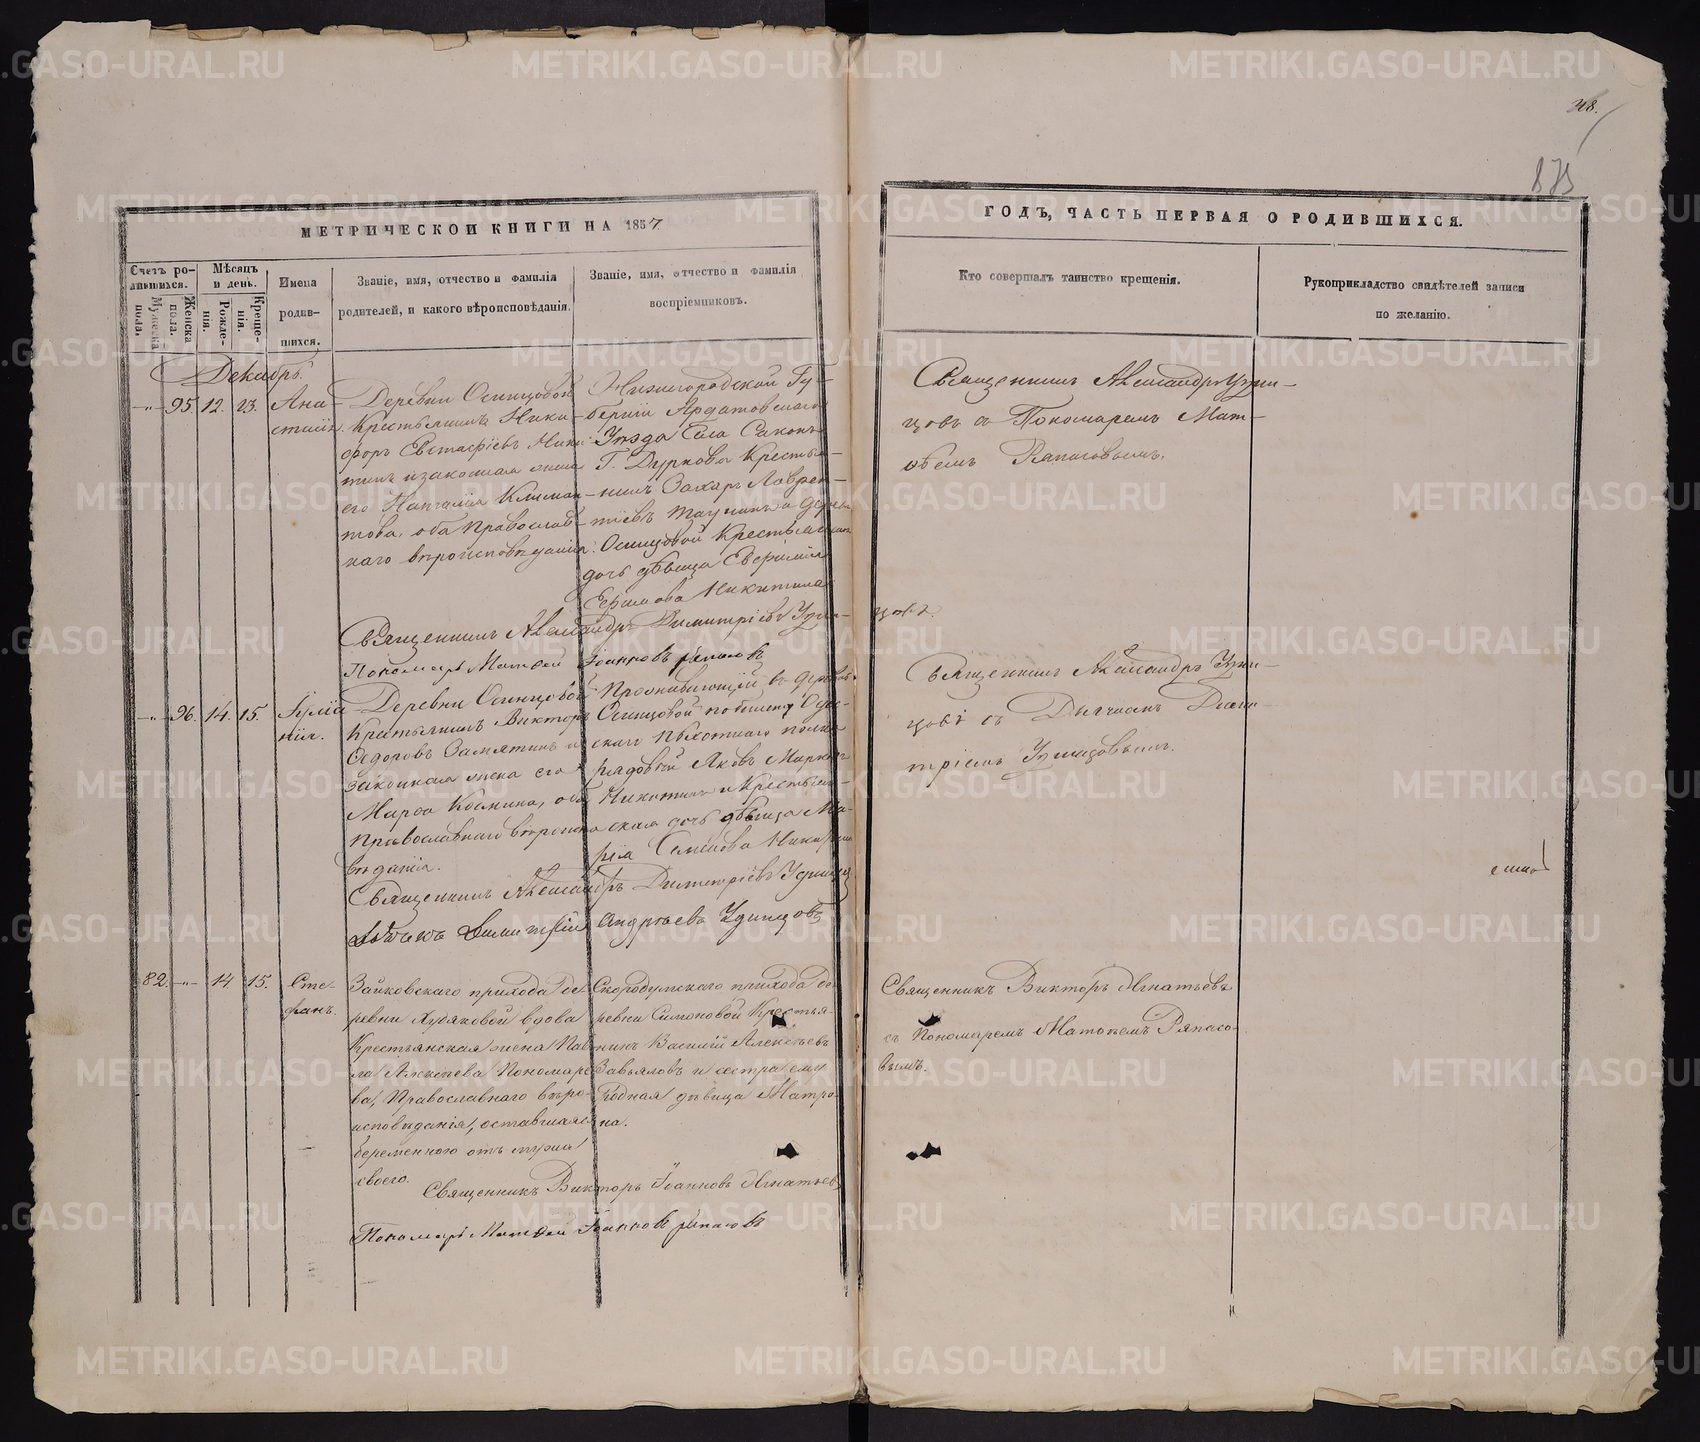 48.
873
МЕТРИЧЕСКОЙ КНИГИ НА 1857
ГОДЪ, ЧАСТЬ ПЕРВАЯ О РОДИВШИХСЯ.
Счетъ ро-
дившихся.
Мужеска
пола.
Женска
пола.
Мѣсяцъ
и день.
Рожде-
нія.
Креще-
нія.
Имена
родив-
шихся.
Званіе, имя, отчество и фамилія
родителей, и какого вѣроисповѣданія.
Званіе, имя, отчество и фамилія
воспріемниковъ.
Кто совершалъ таинство крещенія.
Рукоприкладство свидѣтелей записи
по желанію.
Декабрь.
95. 12. 23.
Ана-
стасія.
Деревни Осинцовой
Крестьянинъ Ники-
форъ Евстафіевъ Ники-
тинъ и законная жена
его Наталія Климан-
това, оба Православ-
наго вѣроисповѣданія.
Нижегородской Гу-
берніи Ардатовскаго
Уѣзда Села Саконъ
Г. Дуркова Крестья-
нинъ Захаръ Лаврен-
тіевъ и дерев.
Осинцовой Крестьянская
дочь дѣвица Евфимія
Ефимова Никитина
Священникъ Александръ Удин-
цовъ съ Пономаремъ Мат-
ѳеемъ Ряпасовымъ.
Священникъ Александръ Димитріевъ Удин-
цовъ.
Пономарь Матѳей Іоанновъ Ряпасовъ
96. 14. 15.
Іуліа-
нія.
Деревни Осинцовой
Крестьянинъ Викторъ
Ѳедоровъ Замятинъ и
законная жена его
Марѳа Козмина, оба
Православнаго вѣроиспо-
вѣданія.
Проживающій въ деревнѣ
Осинцовой по билету
скаго пѣхотнаго полка
рядовый Яковъ
Никитинъ и Крестьян-
ская дочь дѣвица Ма-
рія Семенова
Священникъ Александръ Удин-
цовъ съ Дьячкомъ Дими-
тріемъ Удинцовымъ.
Священникъ Александръ Димитріевъ Удинцовъ
Дьячекъ Димитрій Андреевъ Удинцовъ
82. 14 15.
Сте-
фанъ.
Зайковскаго прихода де-
ревни Худяковой вдова
Крестьянская жена Пав-
ла Алексѣева Пономаре-
ва, Православнаго вѣро-
исповѣданія, оставшаяся
беременною отъ мужа
своего.
Скородумскаго прихода де-
ревни Симоновой Крестья-
нинъ Василій Алексѣевъ
Завьяловъ и сестра ему
Родная дѣвица Матро-
на.
Священникъ Викторъ Игнатьевъ
съ Пономаремъ Матѳеемъ Ряпасо-
вымъ.
Священникъ Викторъ Іоанновъ Игнатьевъ
Пономарь Матѳей Іоанновъ Ряпасовъ
METRIKI.GASO-URAL.RU